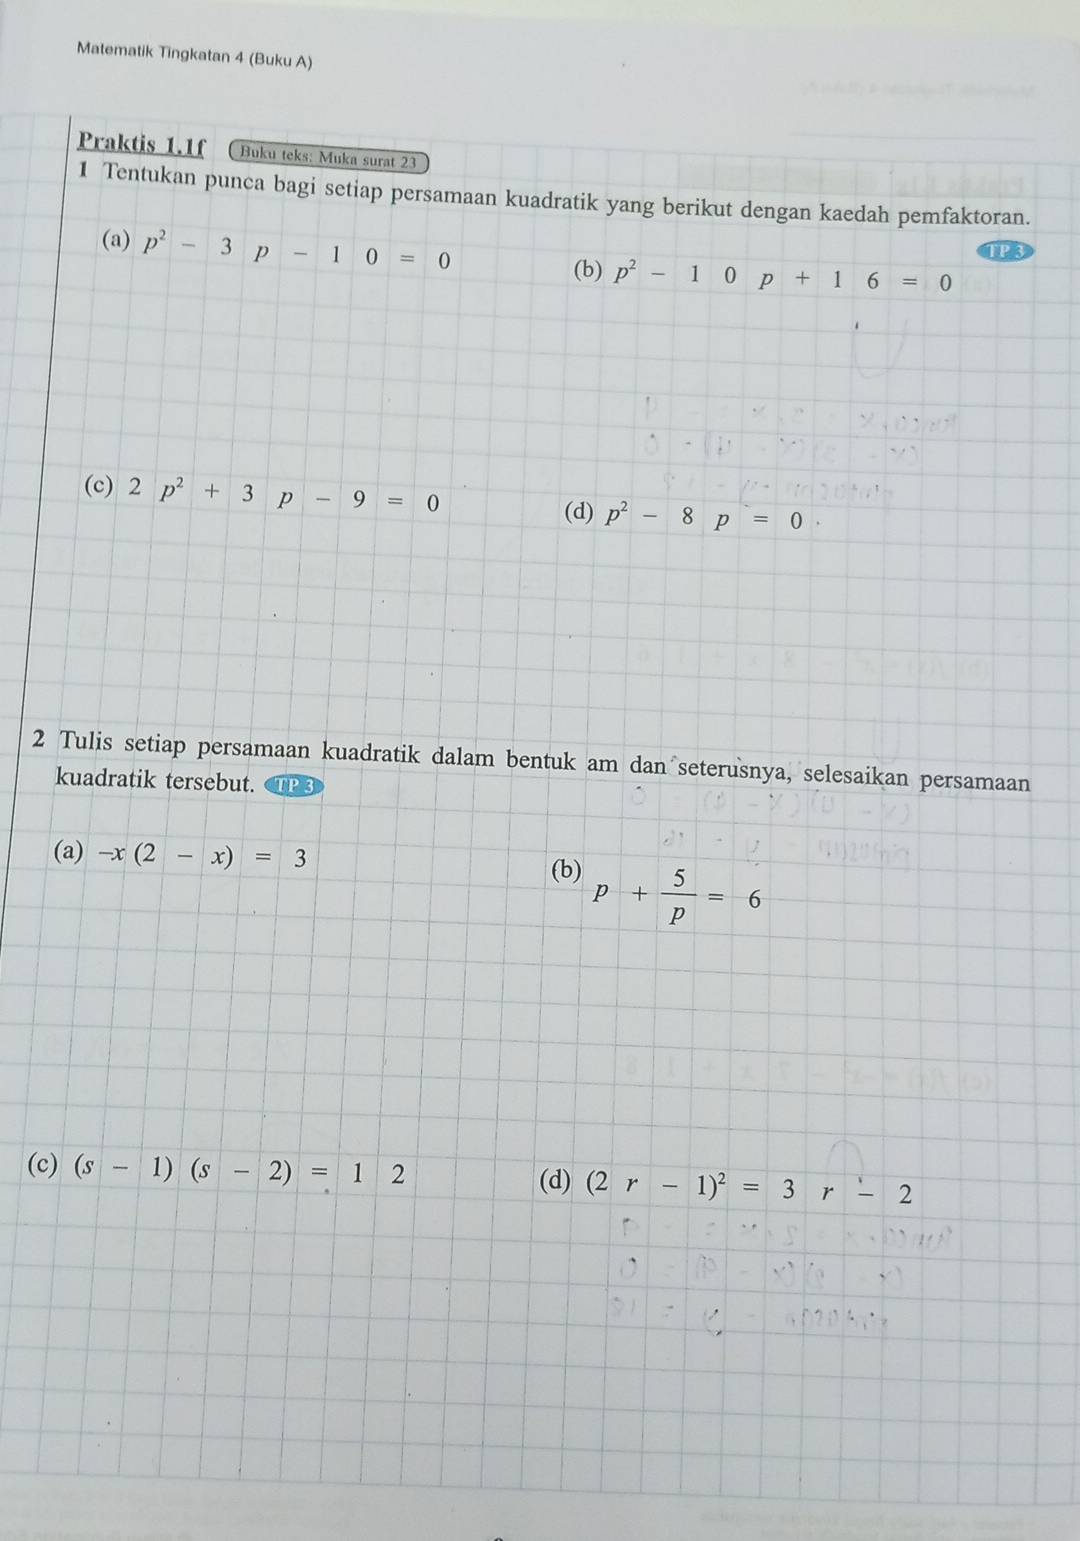 Matematik Tingkatan 4 (Buku A)
Praktis 1.1f Buku teks: Muka surat 23
1 Tentukan punca bagi setiap persamaan kuadratik yang berikut dengan kaedah pemfaktoran.
TP 3
(a) p² - 3 p - 1 0 = 0
(b) p² - 1 0 p + 1 6 = 0
(c) 2 p² + 3 p - 9 = 0
(d) p² - 8 p = 0
2 Tulis setiap persamaan kuadratik dalam bentuk am dan seterusnya, selesaikan persamaan
kuadratik tersebut. TP 3
(a) –x (2 - x) = 3
(b) p + 5/p = 6
(c) (s - 1) (s - 2) = 1 2
(d) (2 r - 1)² = 3 r - 2